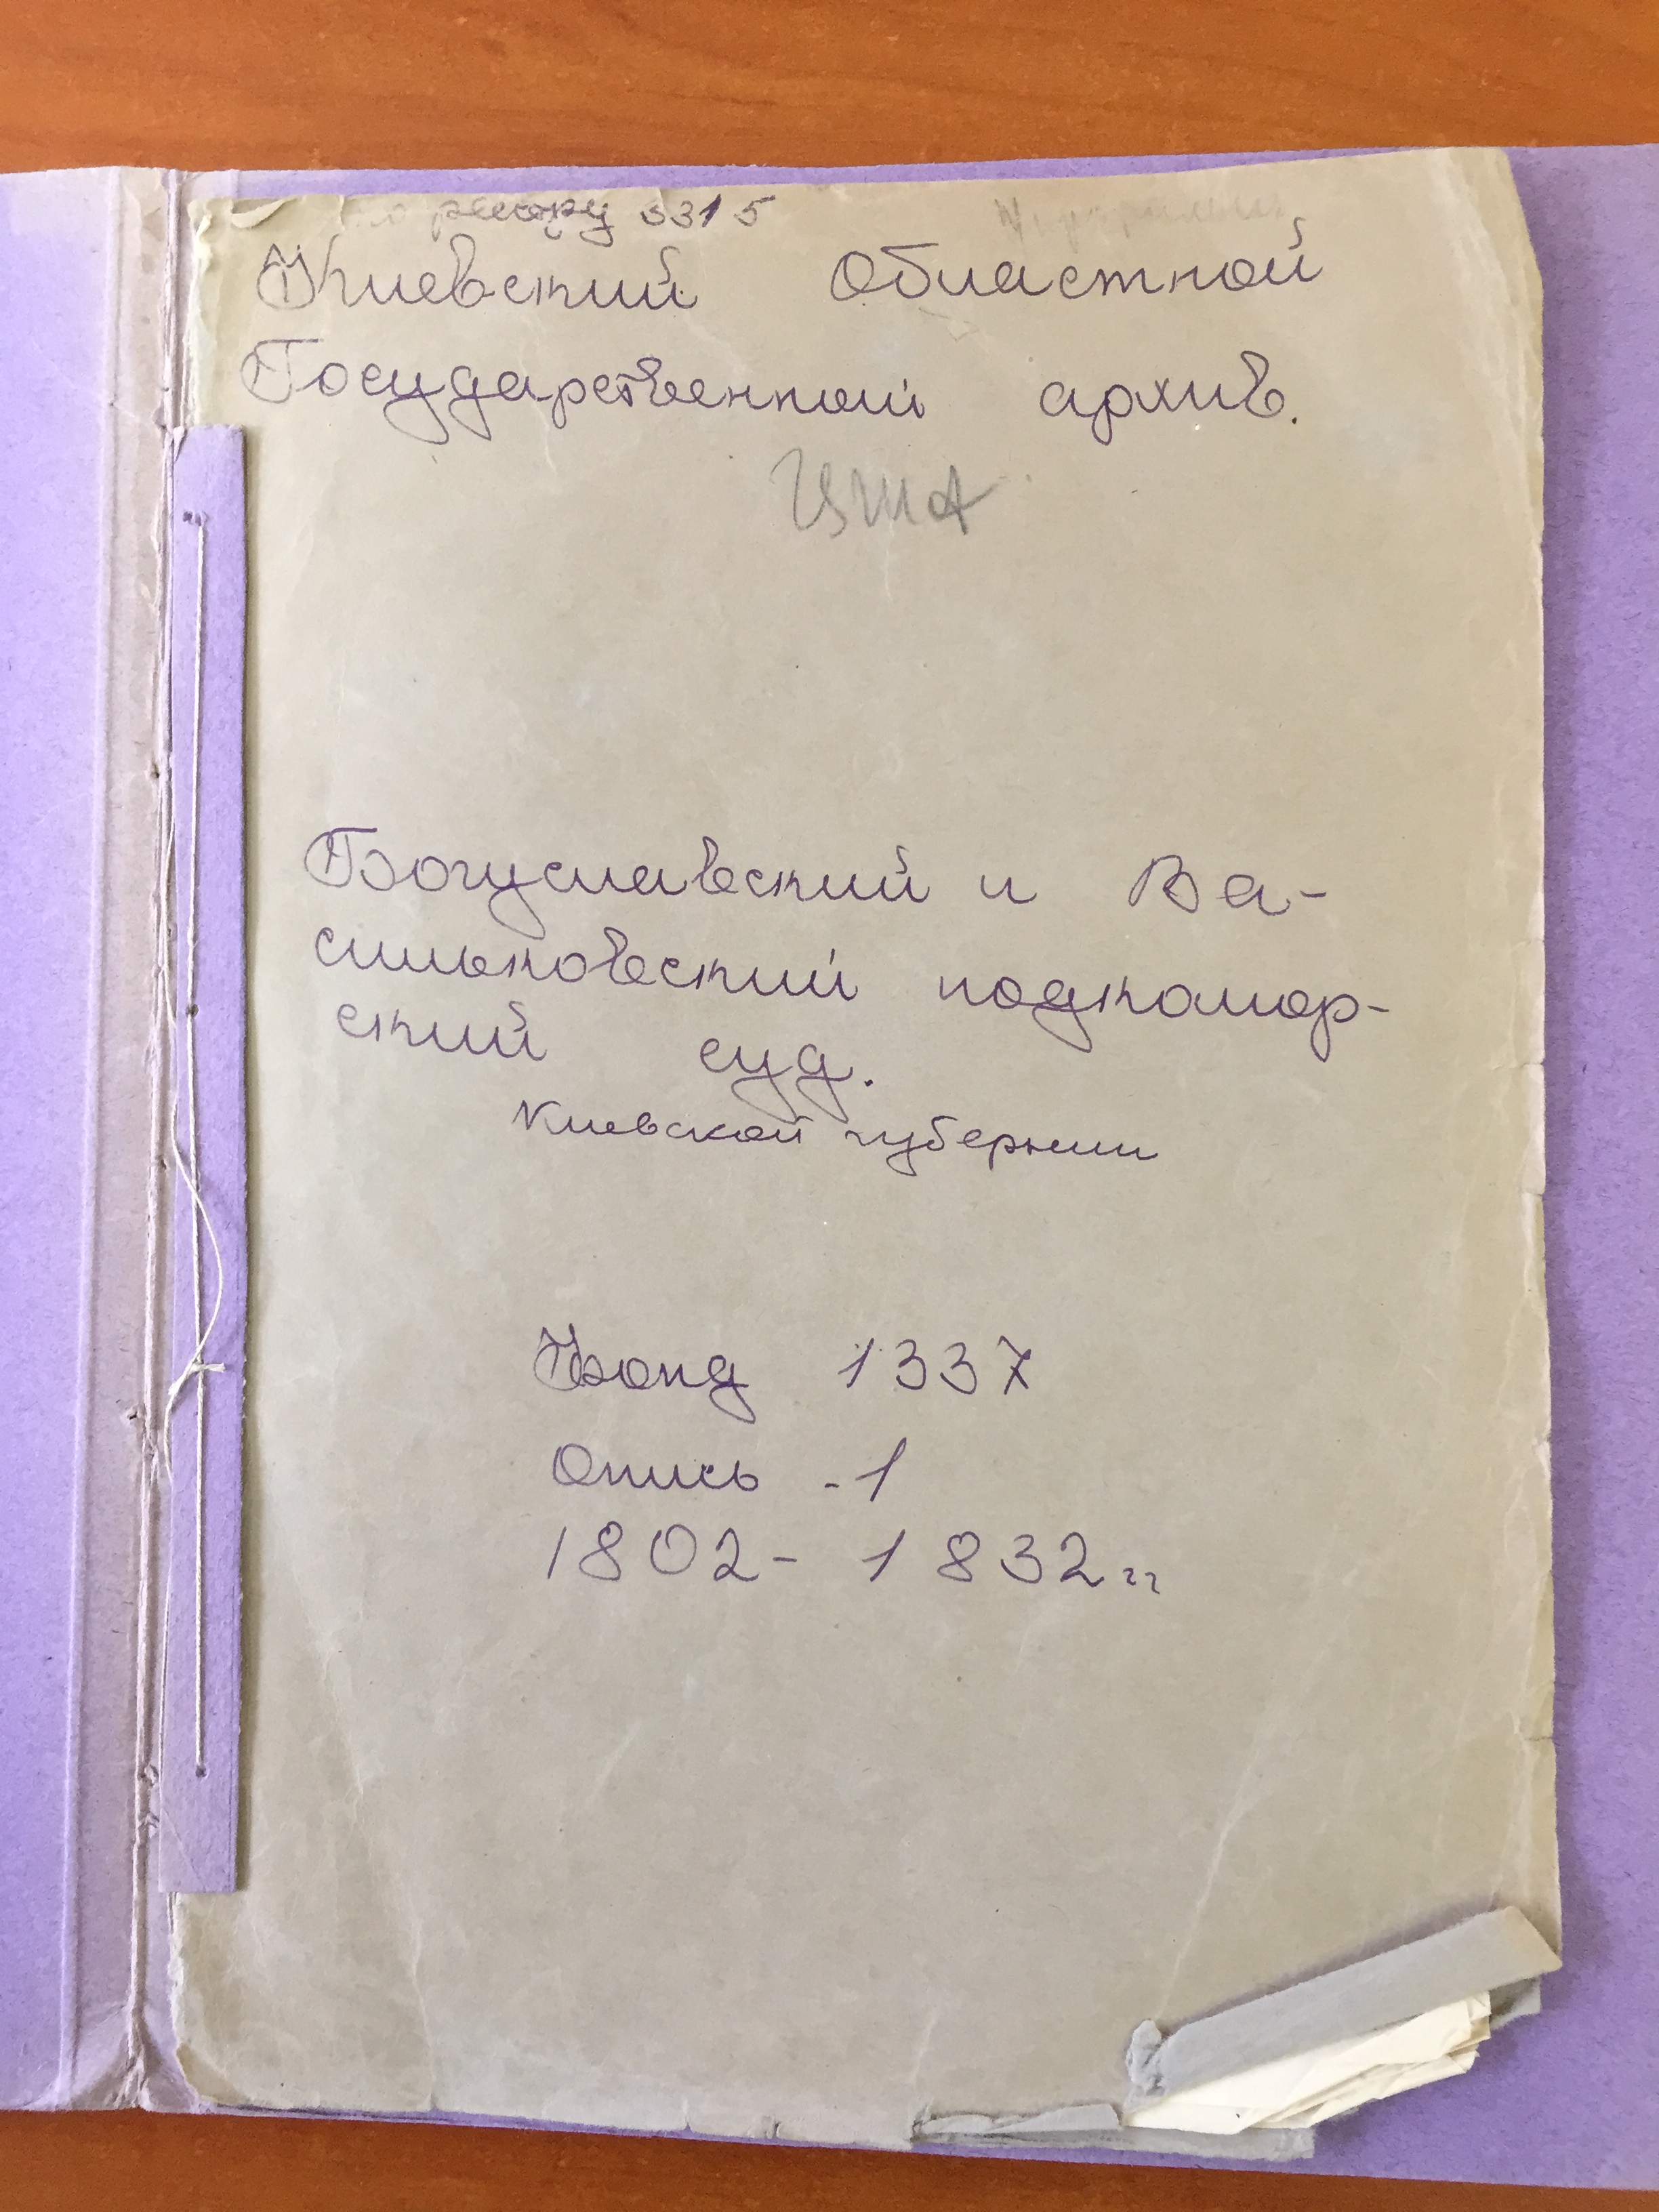 по реестру 3315
Киевский Областной
Государственной архив.
ЦИА
Богуславский и Ва-
сильковский подкомор-
ский суд.
Киевской губернии
Фонд 1337
Опись - 1
1802 - 1832 гг